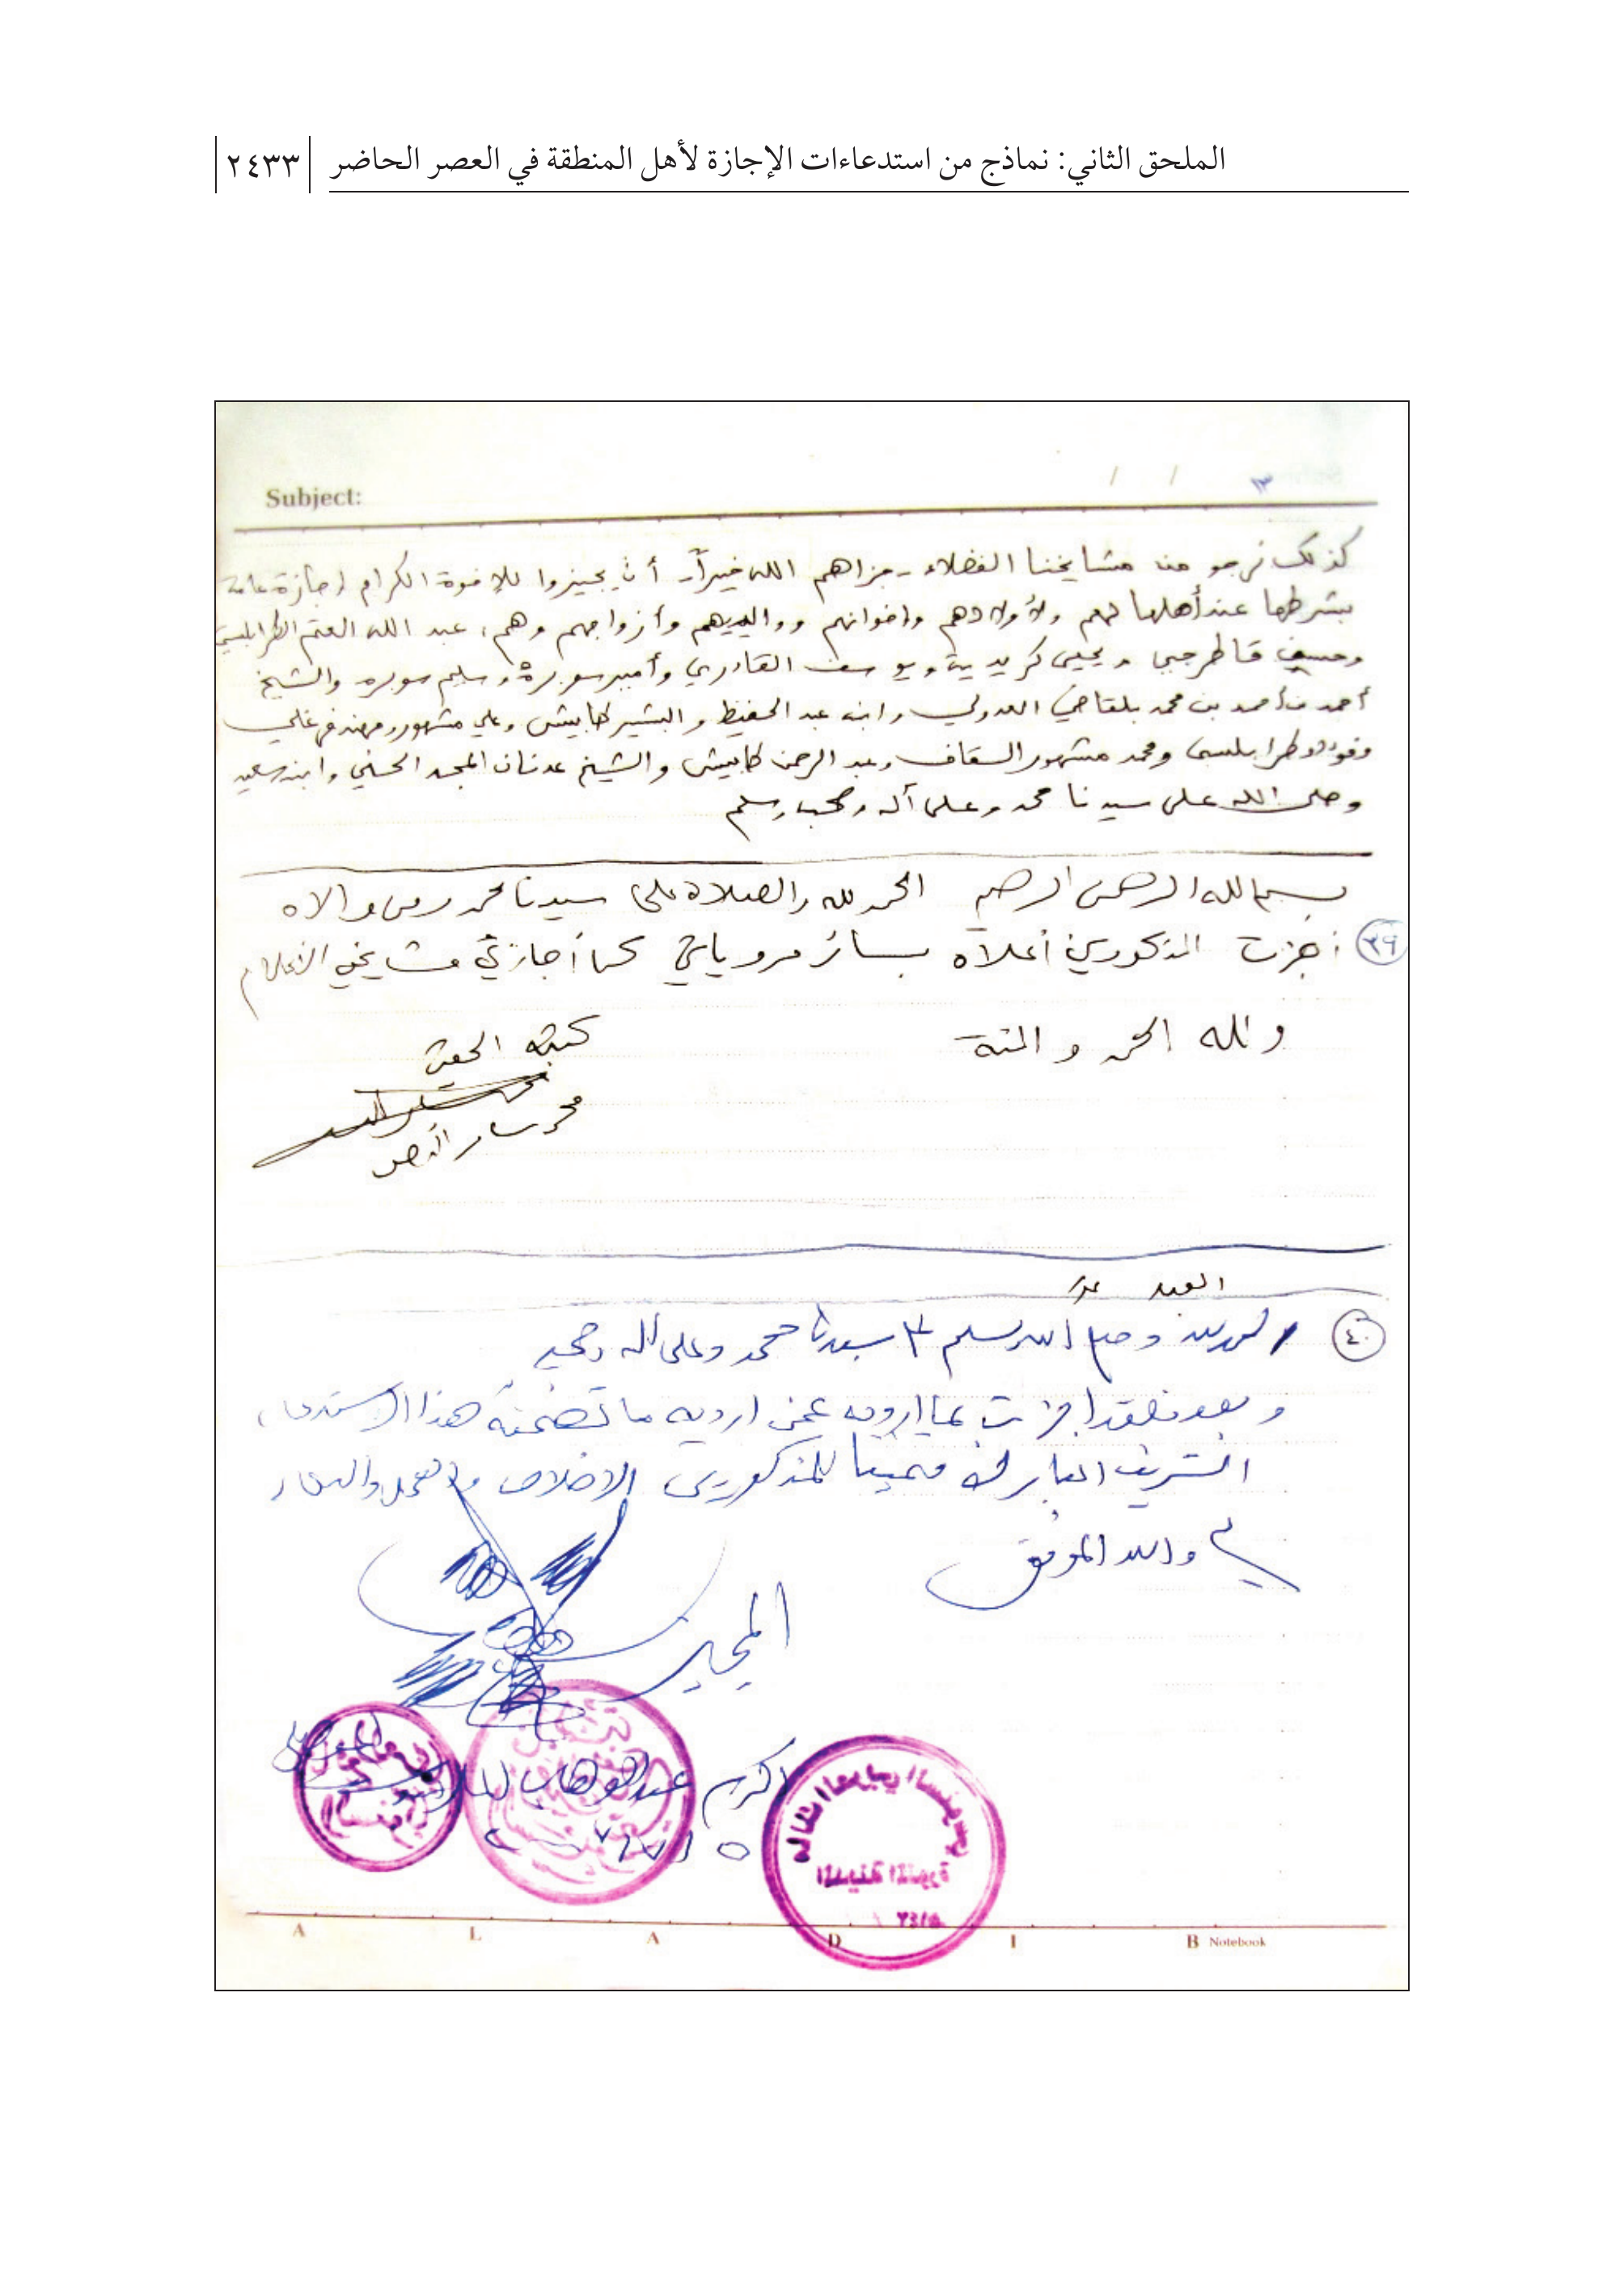 الملحق الثاني: نماذج من استدعاءات الإجازة لأهل المنطقة في العصر الحاضر ٢٤٣٣
Subject: / / ١٣
كذلك نرجو من مشايخنا الفضلاء - جزاهم الله خيراً - أن يجيزوا للإخوة الكرام إجازة عامة
بشرطها عند أهلها لهم ولأولادهم وإخوانهم ووالديهم وأزواجهم وهم: عبد الله العتم الطرابلسي
قاطرجي ويحيى كريدية ويوسف القادري وأمير سوبرة وسليم سوبره والشيخ
أحمد بن أحمد بن محمد بلقاضي العدولي وابنه عبد الحفيظ والبشير طابيش وعلي مشهور ومهند فرغلي
وفؤاد طرابلسي ومحمد مشهور السقاف وعبد الرحمن طابيش والشيخ عدنان المجد الحسني وابنه سعيد
وصلى الله على سيدنا محمد وعلى آله وصحبه وسلم
بسم الله الرحمن الرحيم الحمد لله والصلاة على سيدنا محمد ومن والاه
٣٩ أجزت المذكورين أعلاه بسائر مروياتي كما أجازني مشايخي الأعلام
ولله الحمد والمنة
كتبه الحقير
محمد سامر النص
العبد
٤٠ الحمد لله وصلى الله وسلم على سيدنا محمد وعلى آله وصحبه
وبعد فلقد اجزت بما ارويه عمن ارويه ما تضمنه هذا الاستدعاء
الشريف المبارك متمنيا للمذكورين الاخلاص
والله الموفق
المجيز
اكرم عبد الوهاب
المدينة المنورة
A L A D I B Notebook